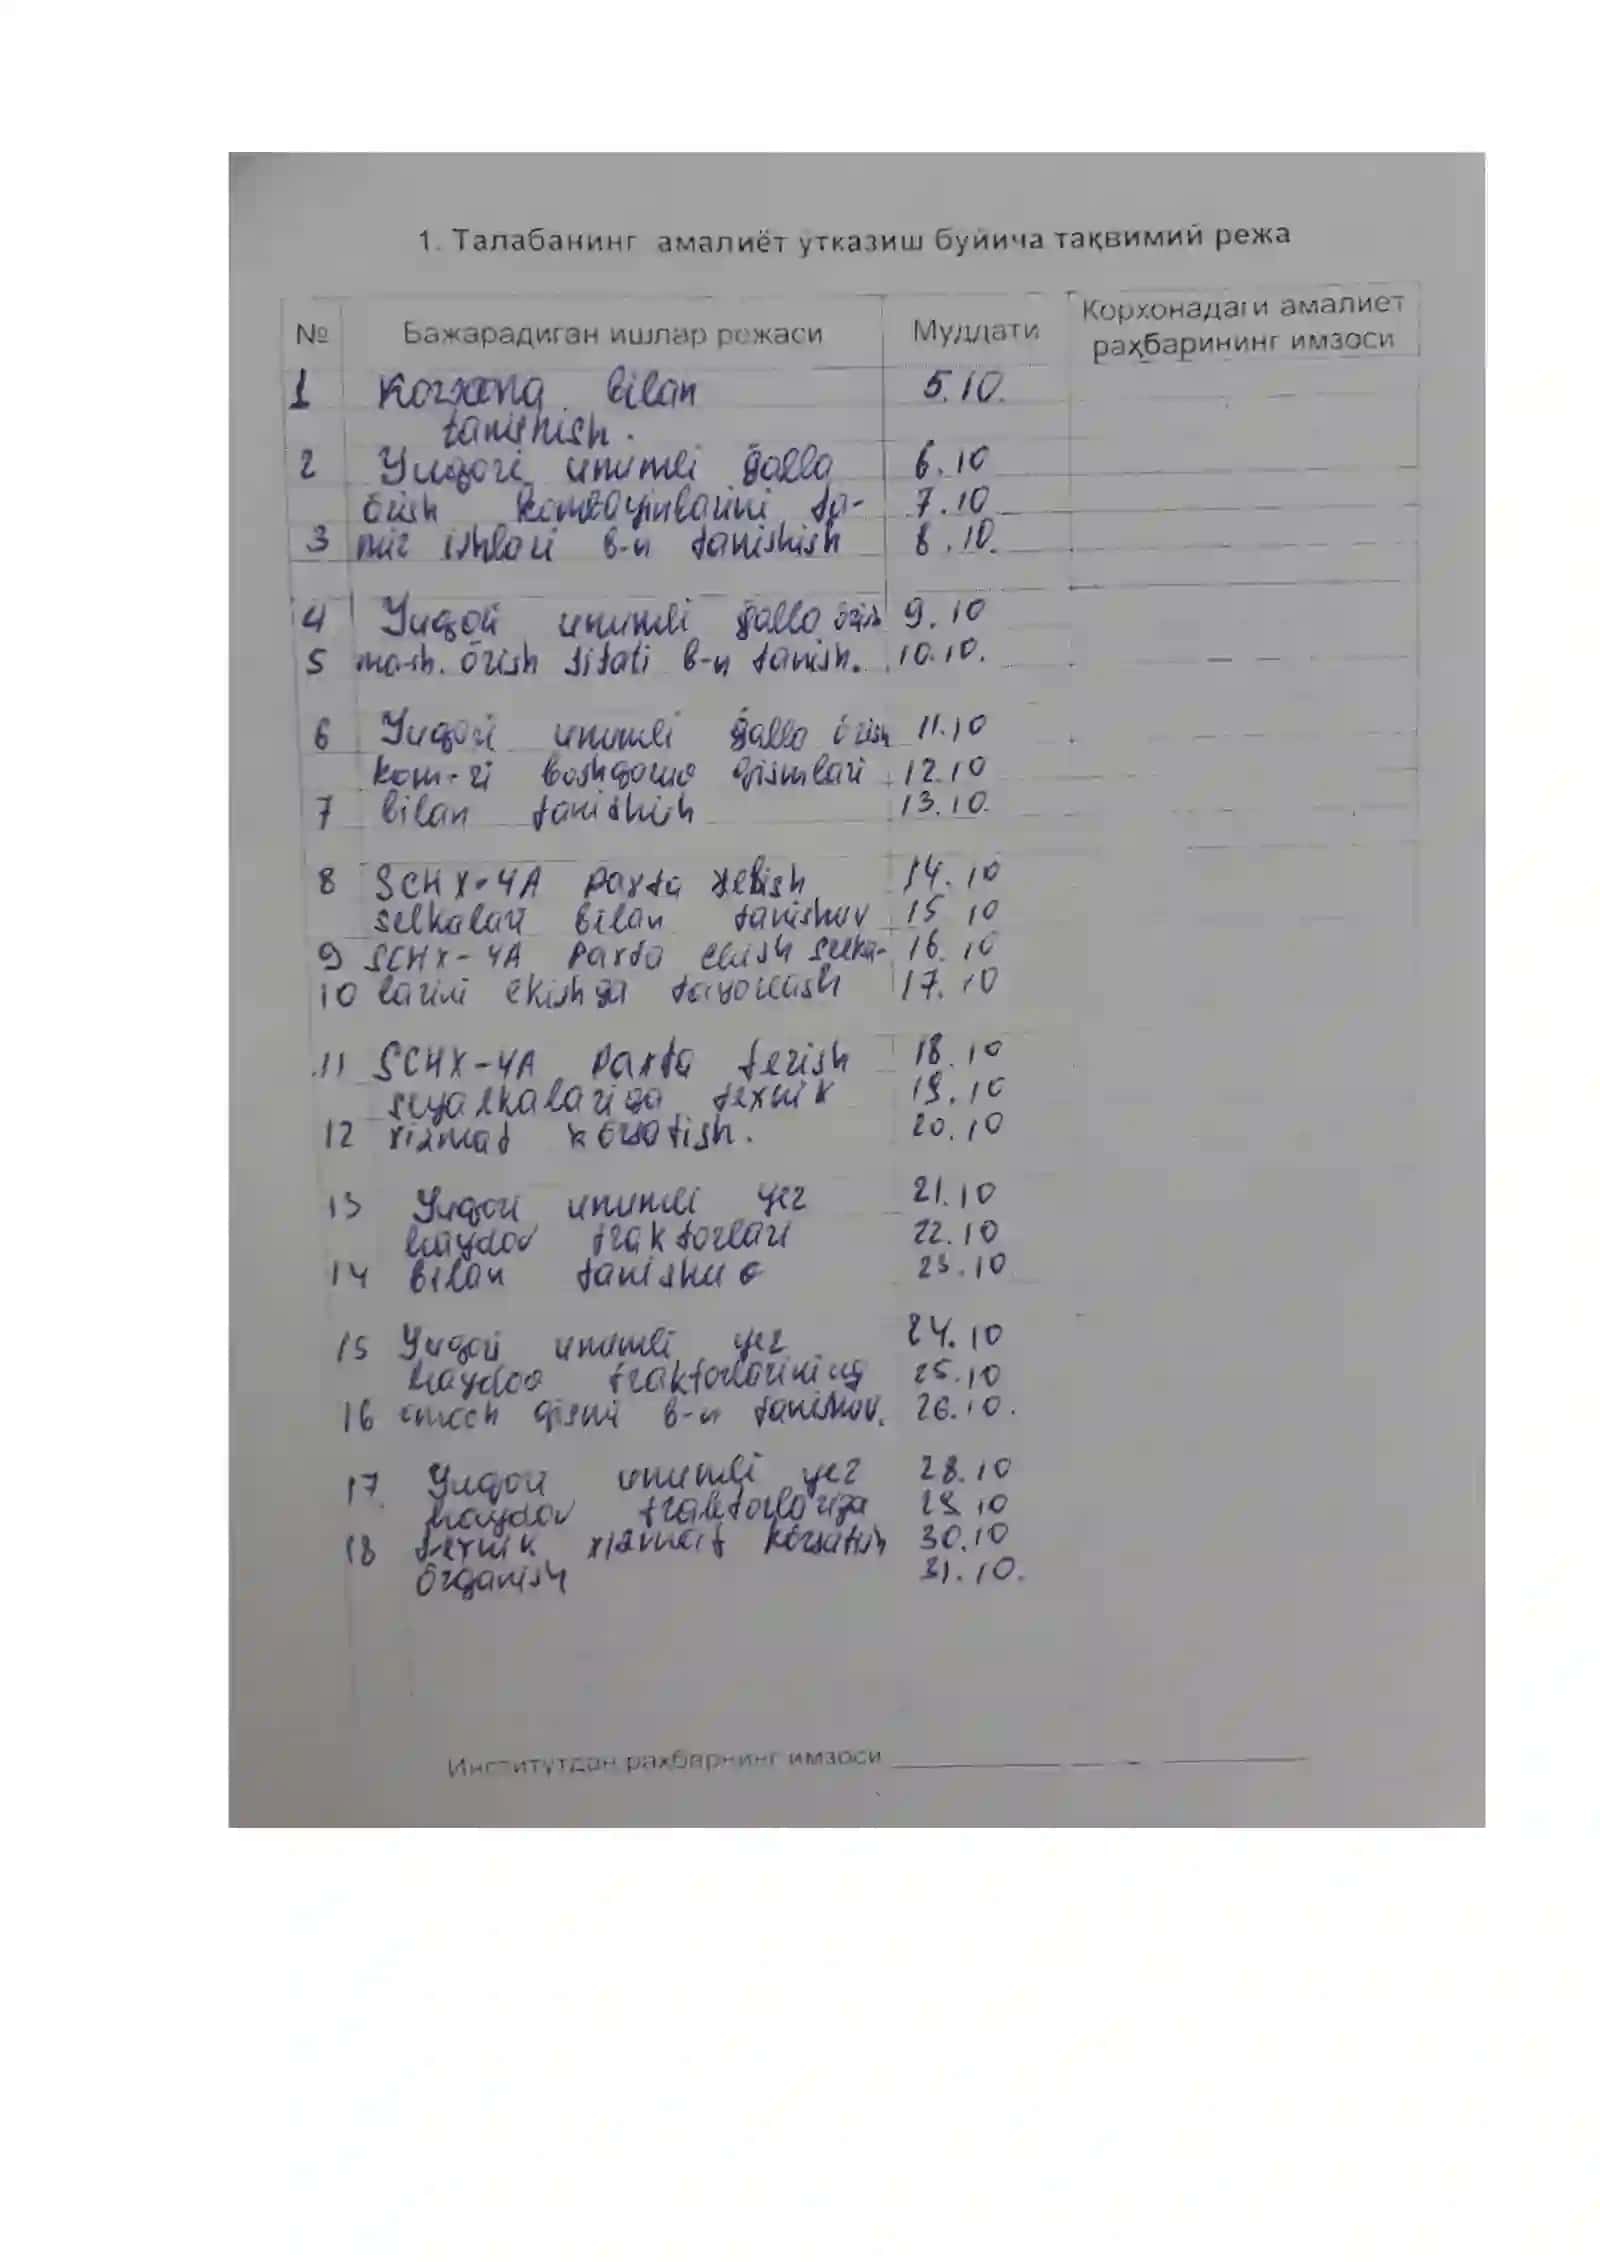 1. Талабанинг амалиёт утказиш буйича тақвимий режа
№ Бажарадиган ишлар режаси Муддати Корхонадаги амалиет раҳбарининг имзоси
1 Korxona bilan 5.10.
tanishish.
2 Yuqori unumli ğalla 6.10
örish kombaynlarini ta- 7.10
3 mir ishlari b-n tanishish 8.10.
4 Yuqori unumli ğalla örish 9.10
5 mash. örish sifati b-n tanish. 10.10.
6 Yuqori unumli ğalla örish 11.10
kom-ri boshqaruv qismlari 12.10
7 bilan tanishish 13.10.
8 SCHX-4A paxta terish 14.10
selkalari bilan tanishuv 15 10
9 SCHX-4A Paxta ekish selka- 16.10
10 larini ekishga tayorlash 17.10
11 SCHX-4A Paxta terish 18.10
seyalkalariga texnik 19.10
12 xizmat körsatish. 20.10
13 Yuqori unumli yer 21.10
haydov traktorlari 22.10
14 bilan tanishuv 23.10
15 Yuqori unumli yer 24.10
haydov traktorlarining 25.10
16 omoch qismi b-n tanishuv. 26.10.
17 Yuqori unumli yer 28.10
haydov traktorlariga 29.10
18 texnik xizmat körsatish 30.10
örganish 31.10.
Институтдан раҳбарнинг имзоси